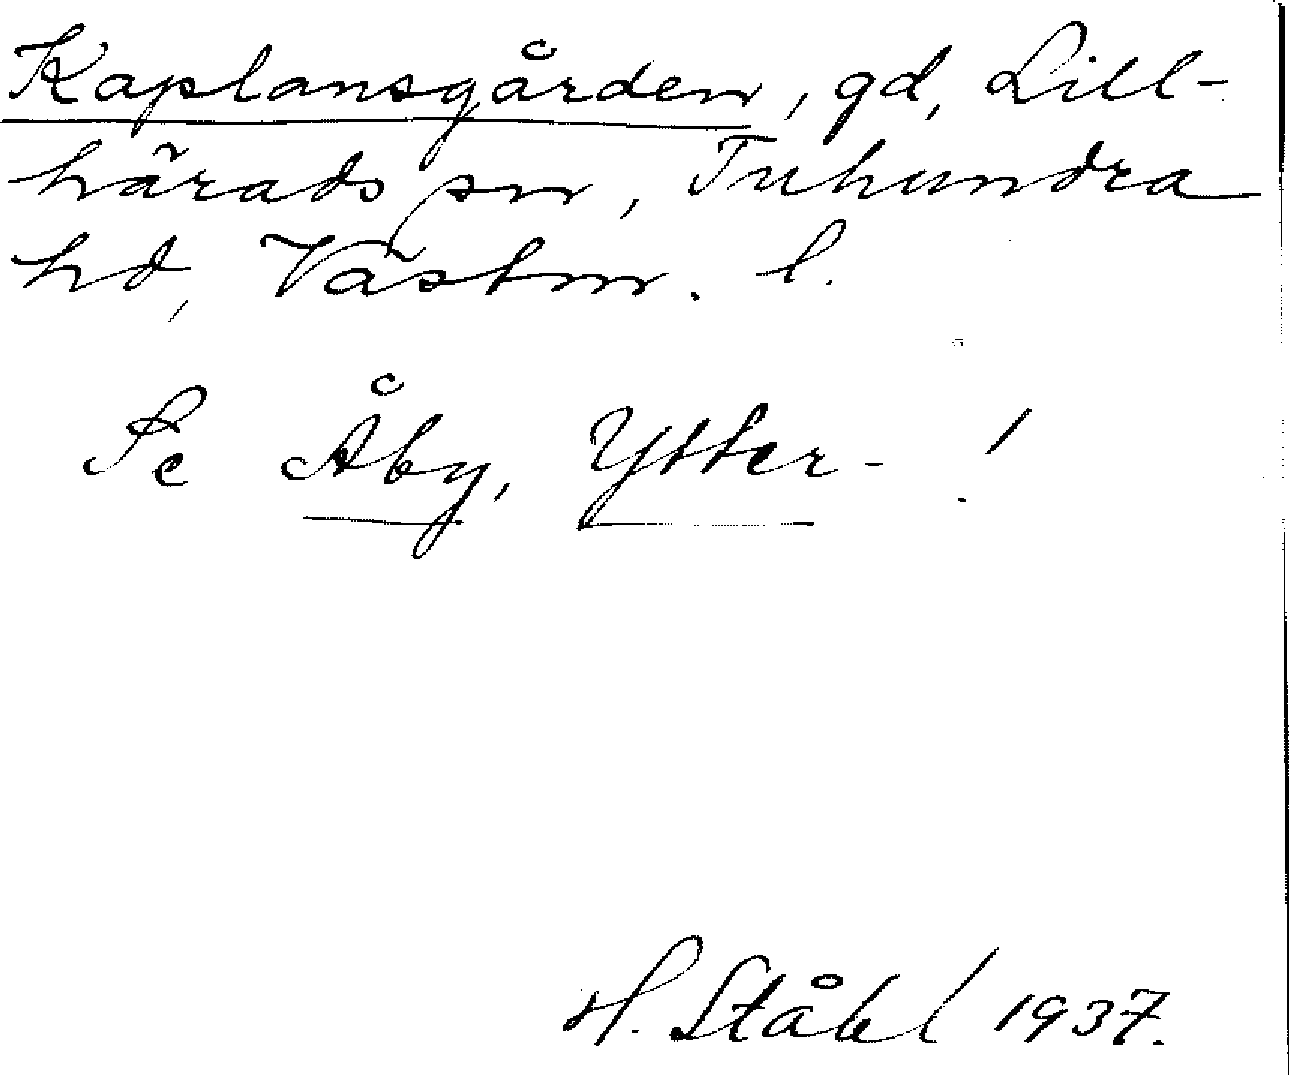 Kaplansgården, gd, Lill-
härads sn, Tuhundra
hd, Västm. l.
Se Åby, Ytter- !
H. Ståhl 1937.